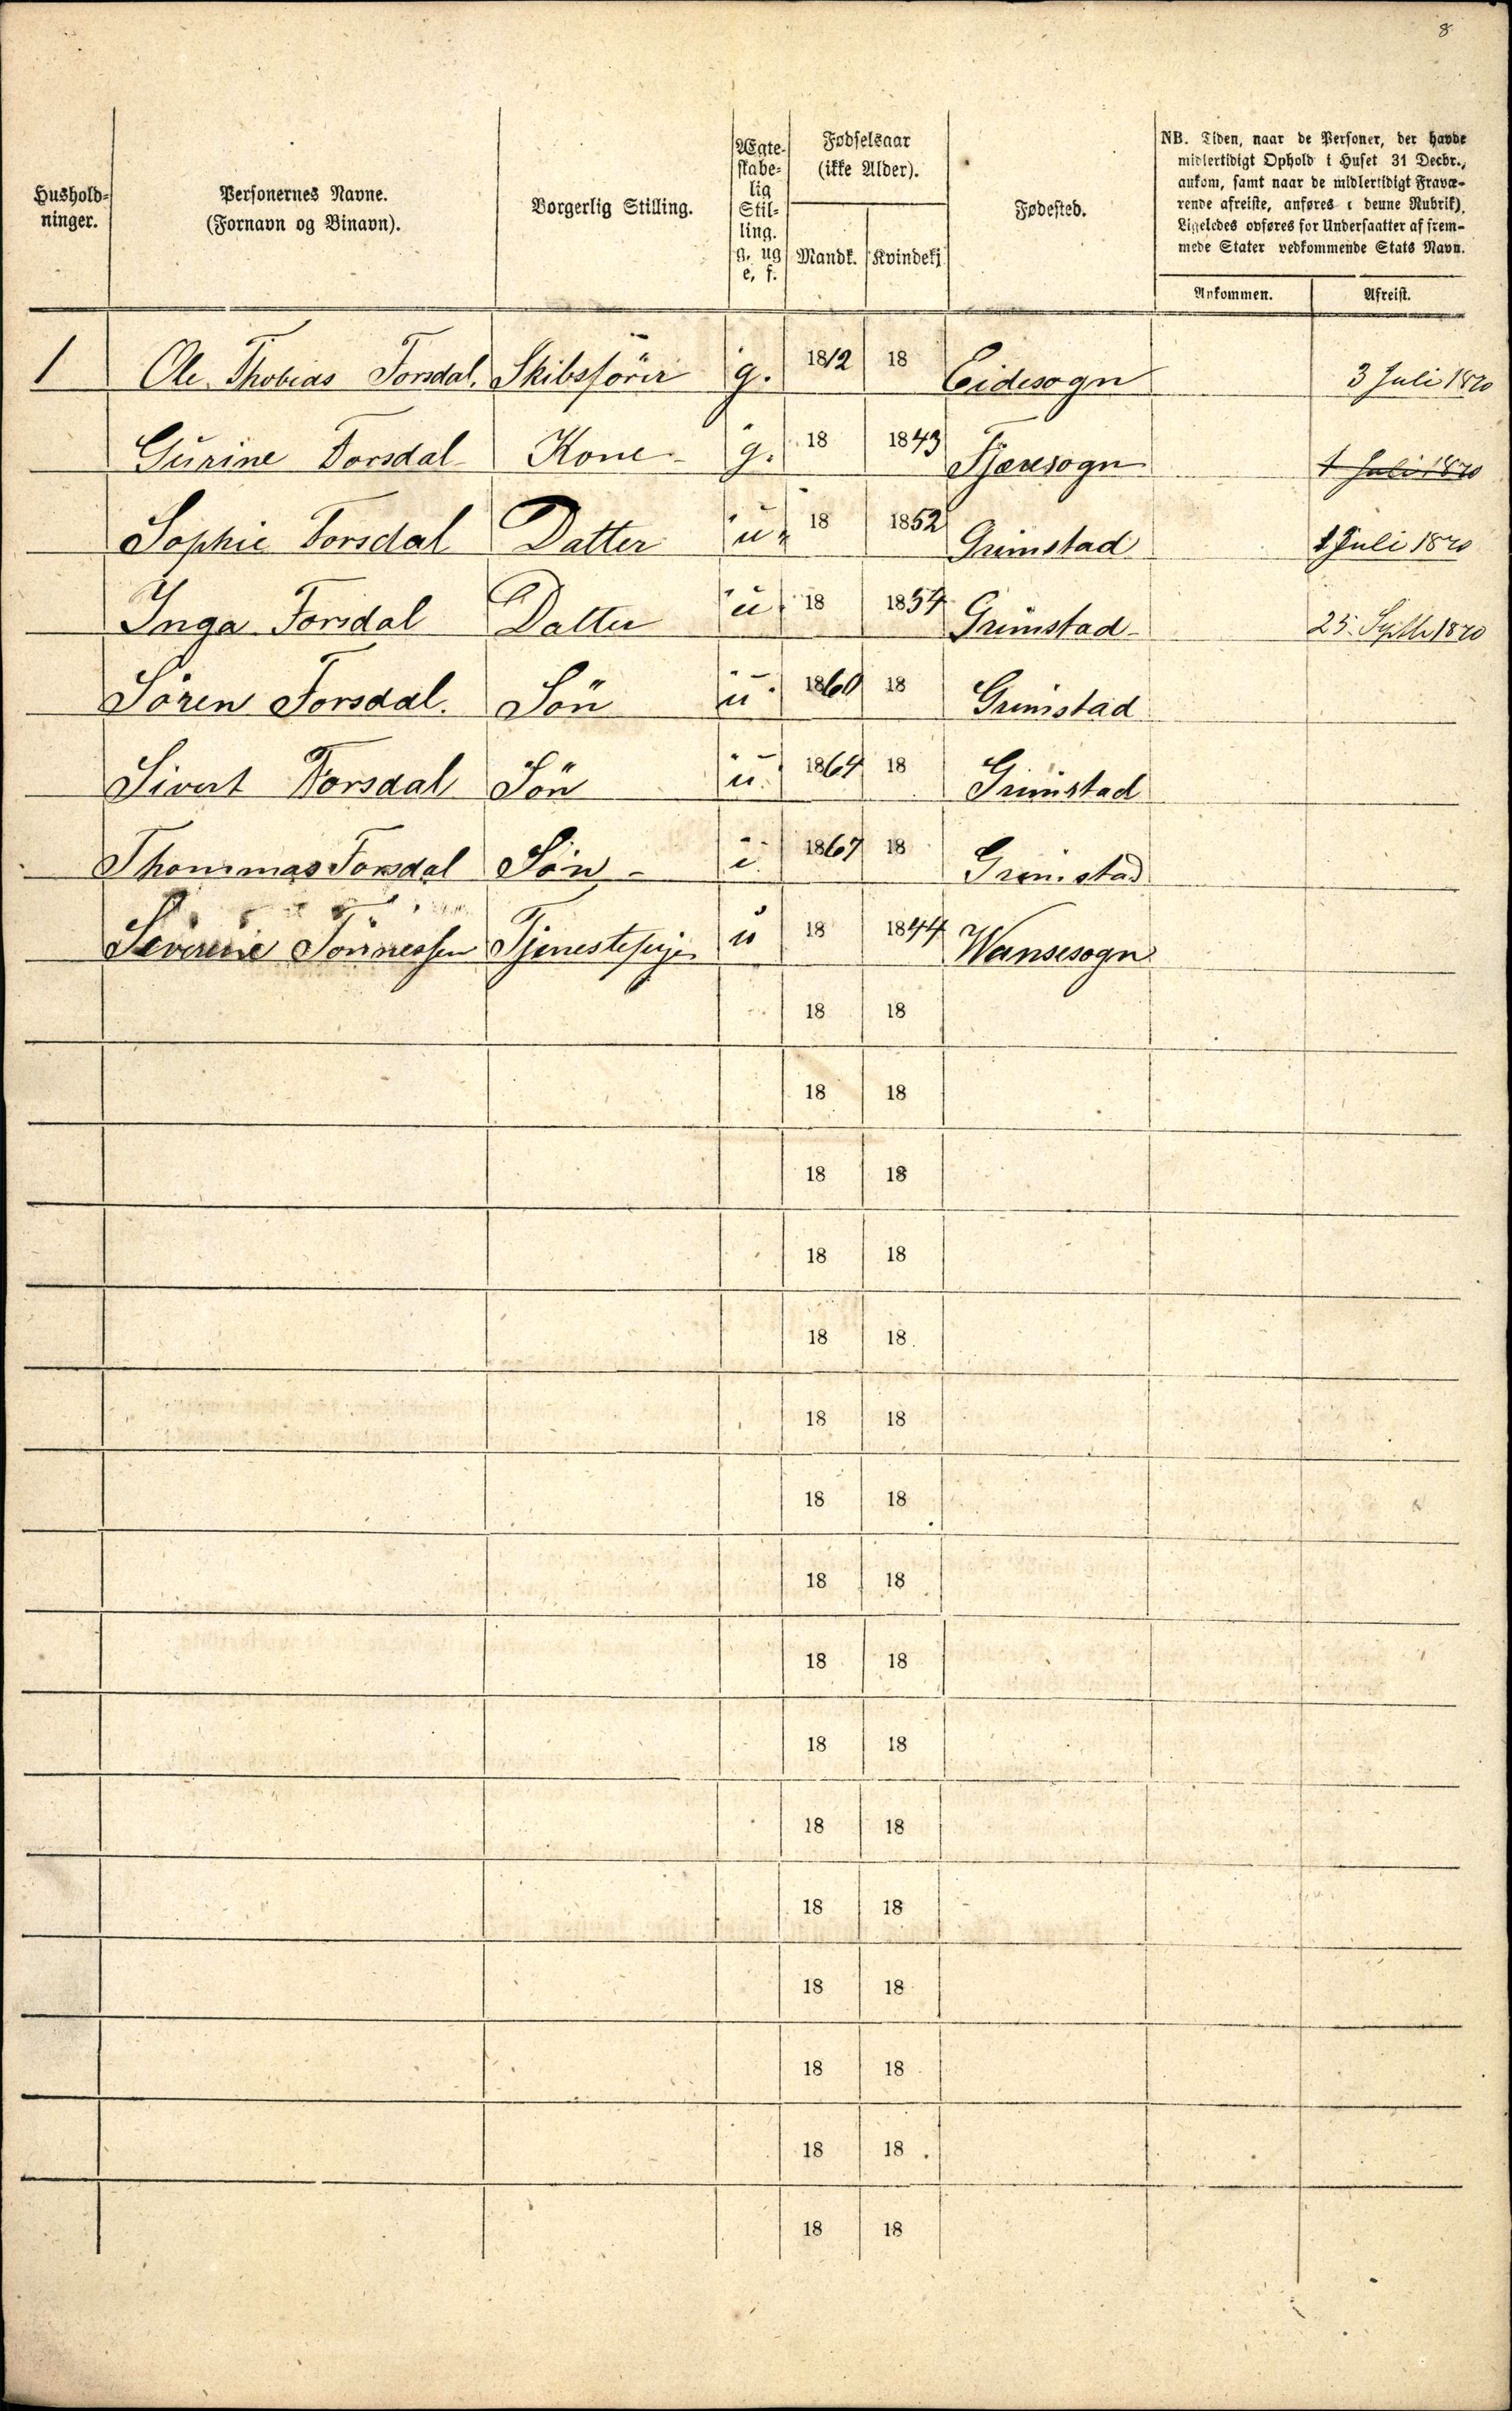 8
Hushold-
ninger.
Personernes Navne.
(Fornavn og Binavn).
Borgerlig Stilling.
Ægte-
skabe-
lig
Stil-
ling.
g. ug
e, f.
Fødselsaar
(ikke Alder).
Mandk.
Kvindekj
Fødested.
NB. Tiden, naar de Personer, der havde
midlertidigt Ophold i Huset 31 Decbr.,
ankom, samt naar de midlertidigt Fravæ-
rende afreiste, anføres i denne Rubrik).
Ligeledes opføres for Undersaatter af frem-
mede Stater vedkommende Stats Navn.
Ankommen.
Afreist.
1 Ole Thobias Torsdal. Skibsförer g. 1812 18 Eidesogn 3 Juli 1870
Gurine Torsdal Kone g. 18 1843 Fjæresogn 1 Juli 1870
Sophie Torsdal Datter u. 18 1852 Grimstad 1 Juli 1870
Inga Torsdal Datter u. 18 1854 Grimstad 25. Septbr 1870
Sören Torsdal. Sön u. 1860 18 Grimstad
Sivert Torsdal Sön u. 1864 18 Grimstad
Thommas Torsdal Sön u. 1867 18 Grimstad
Severine Tönnessen Tjenestepige u 18 1844 Wansesogn
18 18
18 18
18 18
18 18
18 18
18 18
18 18
18 18
18 18
18 18
18 18
18 18
18 18
18 18
18 18
18 18